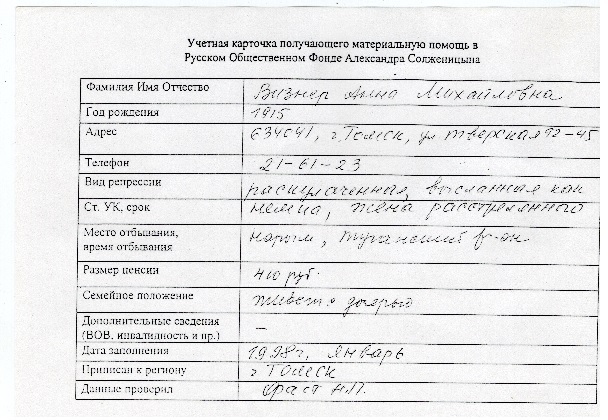 Учетная карточка получающего материальную помощь в
Русском Общественном Фонде Александра Солженицына
Фамилия Имя Отчество Визнер Анна Михайловна
Год рождения 1915
Адрес 634041, г. Томск, ул Тверская 92-45
Телефон 21-61-23
Вид репрессии раскулаченная, высланная как
Ст. УК, срок немка, жена расстрелянного
Место отбывания, Нарым, Туганский р-он
время отбывания
Размер пенсии 410 руб.
Семейное положение живет с дочерью
Дополнительные сведения —
(ВОВ, инвалидность и пр.)
Дата заполнения 1998 г, январь
Приписан к региону г Томск
Данные проверил Н.П.